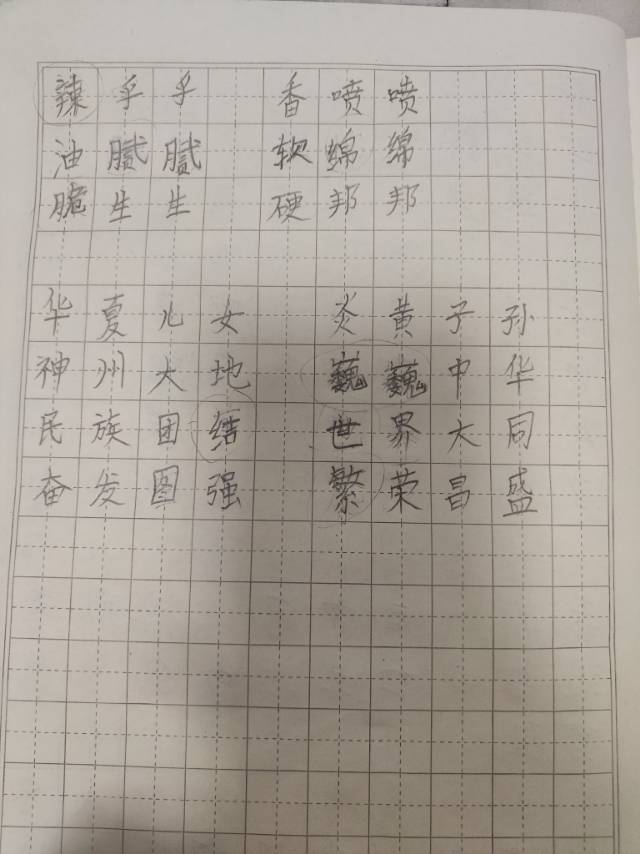 辣乎乎 香喷喷
油腻腻 软绵绵
脆生生 硬邦邦
华夏儿女 炎黄子孙
神州大地 巍巍中华
民族团结 世界大同
奋发图强 繁荣昌盛